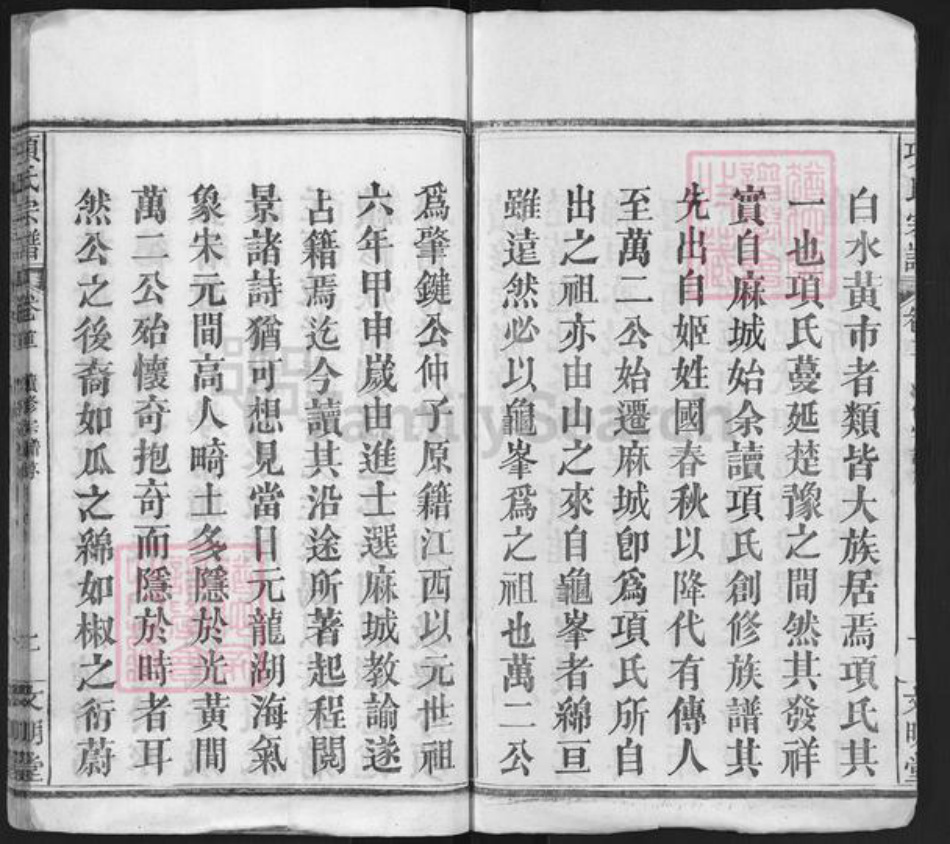 白水黃市者類皆大族居焉項氏其
一也項氏蔓延楚豫之間然其發祥
實自麻城始余讀項氏創修族譜其
先出自姬姓國春秋以降代有傳人
至萬二公始遷麻城卽爲項氏所自
出之祖亦由山之來自龜峯者綿亘
雖遠然必以龜峯爲之祖也萬二公
爲肇鍵公仲子原籍江西以元世祖
六年甲申嵗由進士選麻城教諭遂
占籍焉迄今讀其沿途所著起程閱
景諸詩猶可想見當日元龍湖海氣
象宋元間高人畸士多隱於光黃間
萬二公殆懷奇抱奇而隱於時者耳
然公之後裔如瓜之綿如椒之衍蔚
項氏宗譜
文明堂
FamilySearch